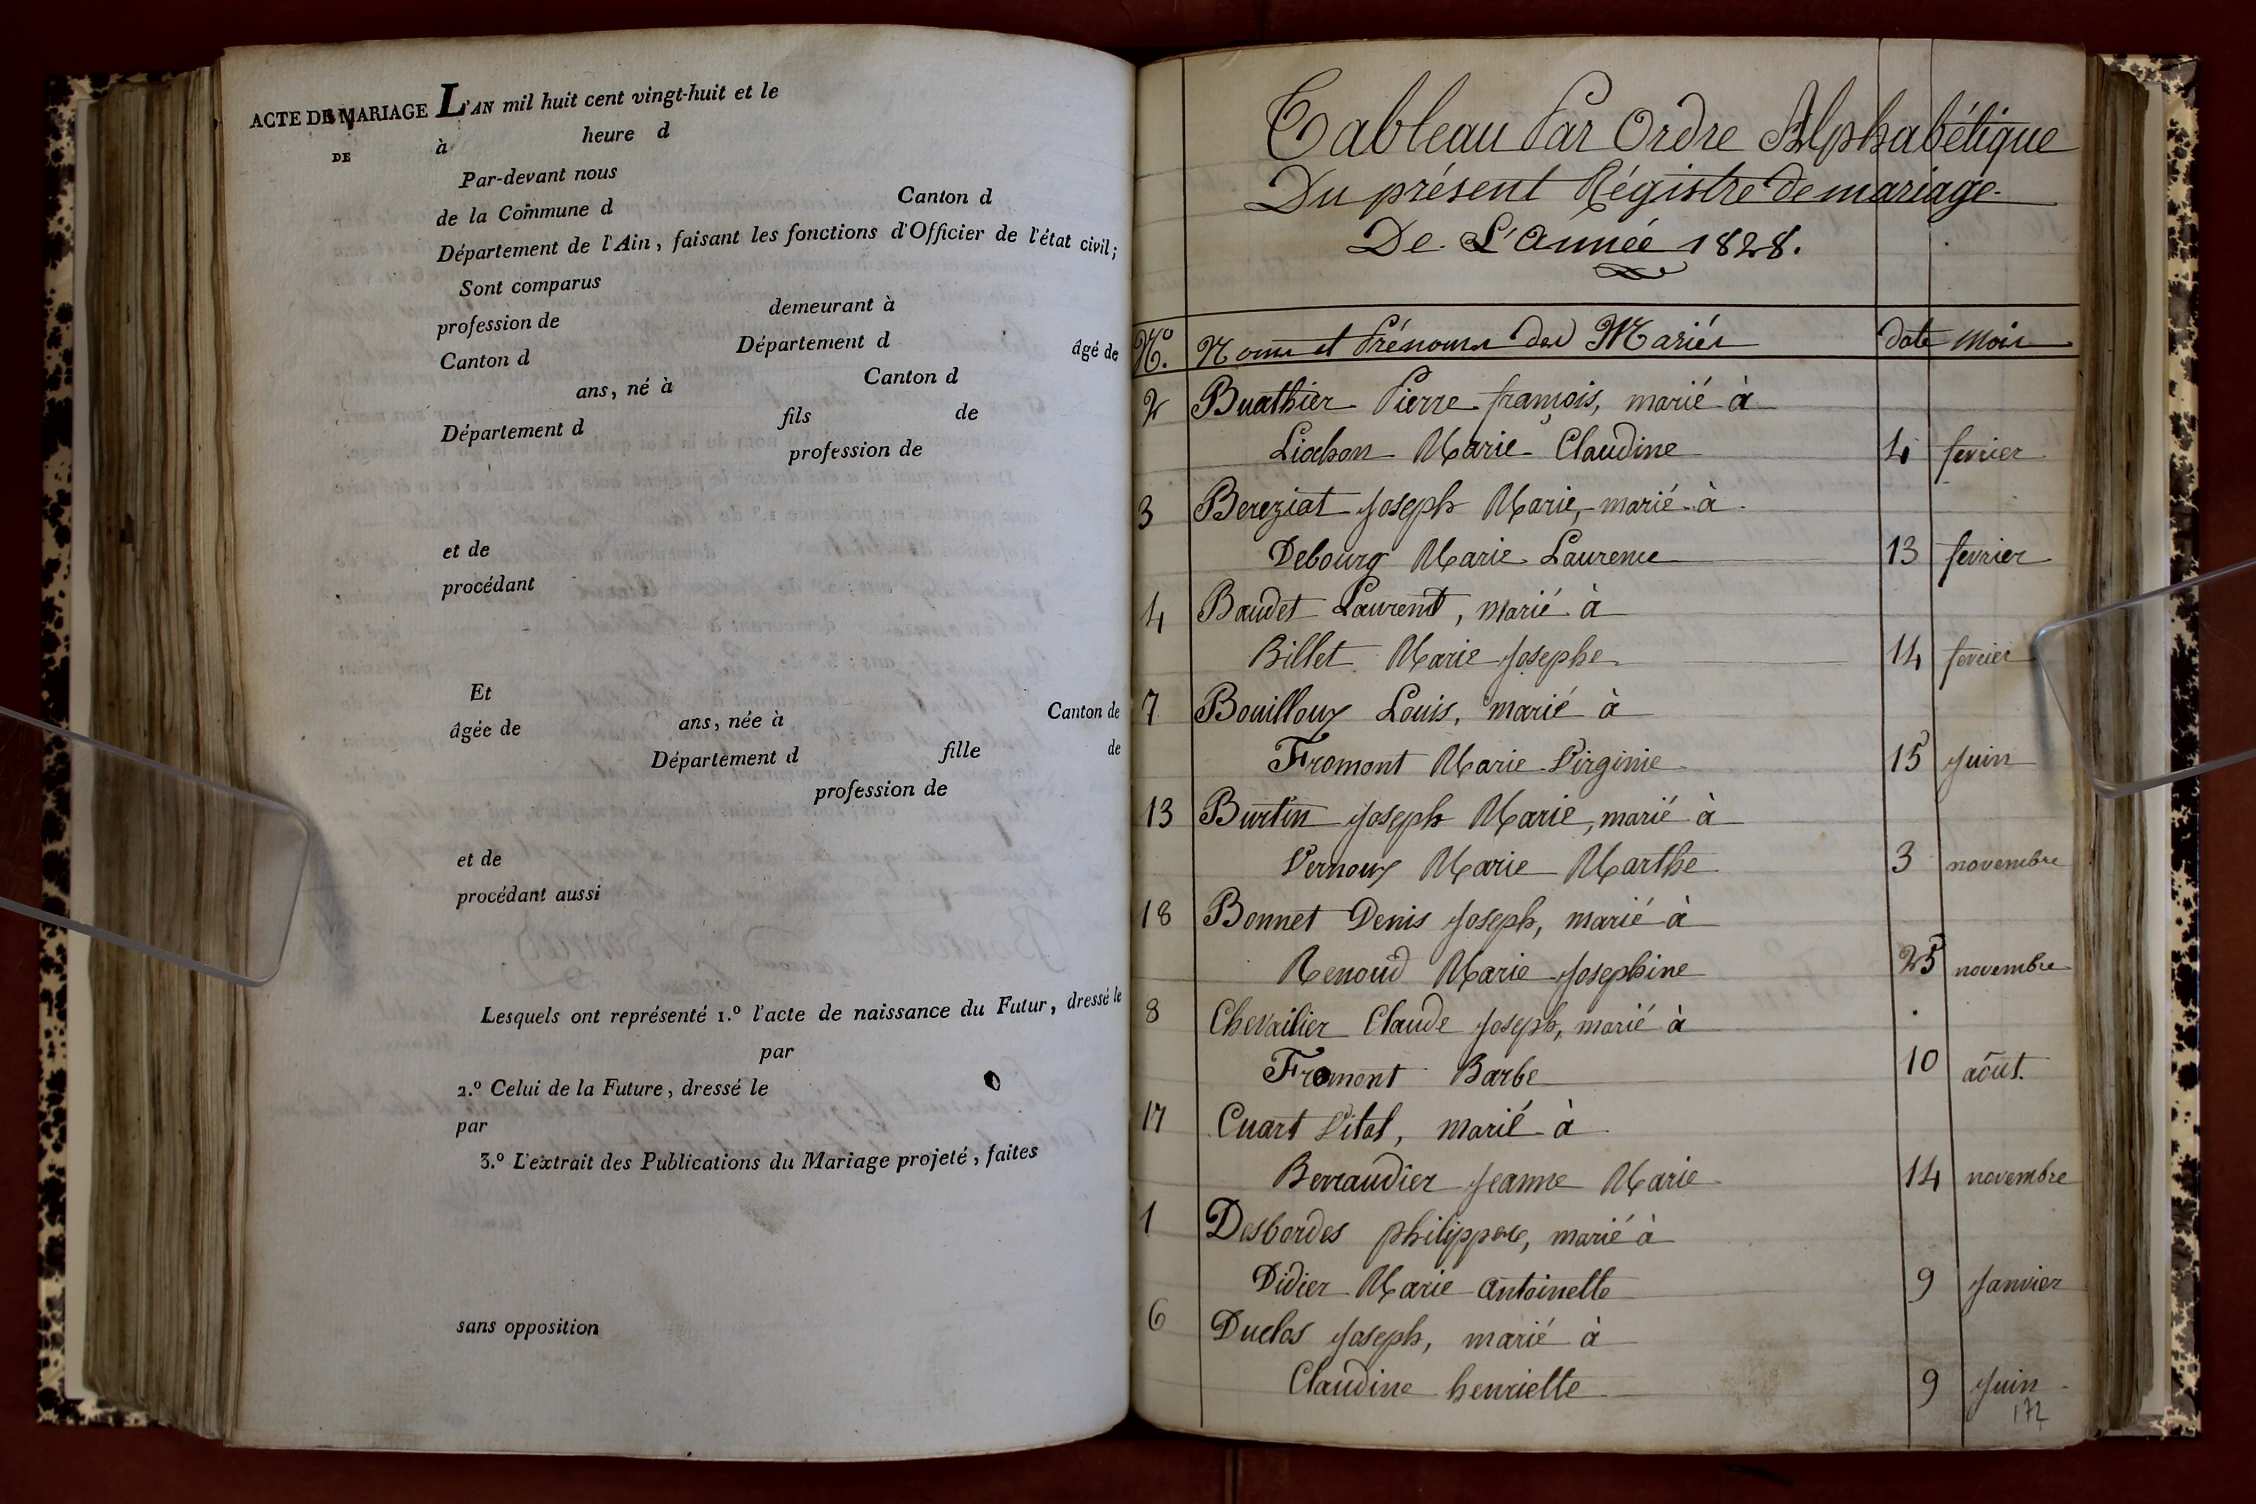 ACTE DE MARIAGE
DE
L'AN mil huit cent vingt-huit et le
à heure d
Par-devant nous
de la Commune d Canton d
Département de l'Ain, faisant les fonctions d'Officier de l'état civil;
Sont comparus
profession de demeurant à
Canton d Département d âgé de
ans, né à Canton d
Département d fils de
profession de
et de
procédant
Et
âgée de ans, née à Canton de
Département d fille de
profession de
et de
procédant aussi
Lesquels ont représenté 1.º l'acte de naissance du Futur, dressé le
par
2.º Celui de la Future, dressé le
par
3.º L'extrait des Publications du Mariage projeté, faites
sans opposition
Tableau Par Ordre Alphabétique
Du présent Régistre de mariage
De L'Année 1828.
Nº. Noms et Prénoms des Mariés date mois
2 Buathier Pierre françois, marié à
Liochon Marie Claudine 4 fevrier
3 Bereziat Joseph Marie, marié à
Debourg Marie Laurence 13 fevrier
4 Baudet Laurent, marié à
Billet Marie Josephe 14 fevrier
7 Bouilloux Louis, marié à
Fromont Marie Virginie 15 Juin
13 Burtin Joseph Marie, marié à
Vernoux Marie Marthe 3 novembre
18 Bonnet Denis Joseph, marié à
Renoud Marie Josephine 25 novembre
8 Chevailier Claude Joseph, marié à
Fromont Barbe 10 août.
17 Cuart Vital, marié à
Berraudier Jeanne Marie 14 novembre
1 Desbordes philippe, marié à
Didier Marie Antoinette 9 Janvier
6 Duclos Joseph, marié à
Claudine henriette 9 Juin
172